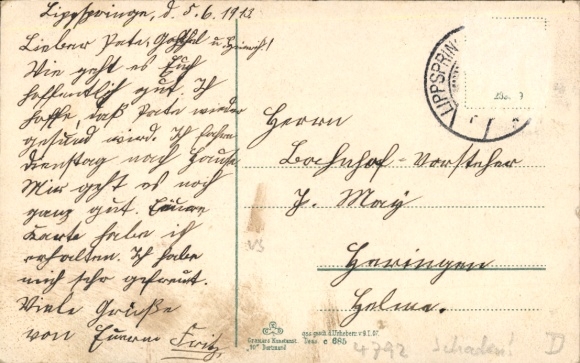 Lippspringe, d. 5.6.1912
Lieber Pate, u. Heinrich!
Wie geht es Euch
hoffentlich gut. Ich
hoffe, daß Pate wieder
gesund wird. Ich fahre
Dienstag nach Hause
Mir geht es noch
ganz gut. Euere
Karte habe ich
erhalten. Ich habe
mich sehr gefreut.
Viele Grüße
von Euerm Fritz
LIPPSPRIN
Herrn
Bahnhof-Vorsteher
J. May
Heringen
Helme.
Cramers Kunstanst.
Dortmund
Ges. gesch. d. Urhebern v. 9.1.07.
Dess. c 685
VS
4792 Schraden! D